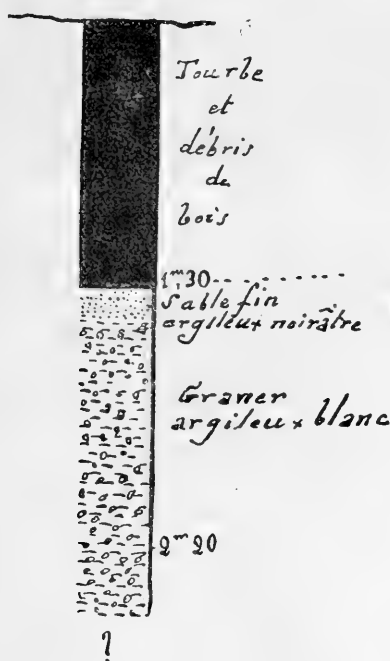 Tourbe
et
débris
de
bois
1m,30
Sable fin
argileux noirâtre
Gravier
argileux blanc
2m20
?